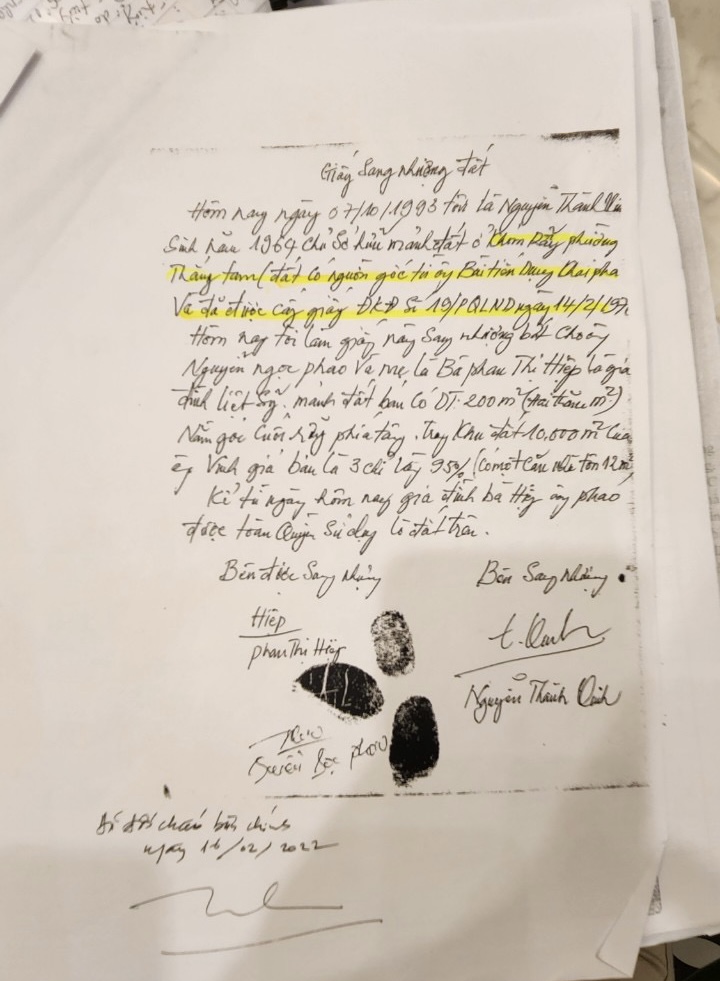 Giấy Sang nhượng đất
Hôm nay ngày 07/10/1993 tôi là Nguyễn Thành
Sinh năm 1964 chủ sở hữu mảnh đất ở phường
Thắng tam (đất có nguồn gốc từ ông Bùi tiến Dụng khai phá
Và đã được cấp giấy ĐKĐ Số 19/PQLND ngày 14/2/197
Hôm nay tôi làm giấy này Sang nhượng đất cho ông
Nguyễn ngọc phao Và mẹ là Bà phan Thị Hiệp là gia
đình liệt Sỹ. mảnh đất bán có DT: 200m² (Hai trăm m²)
Nằm góc cuối phía tầng. trong Khu đất 10.000m² của
giá bán là 3 chỉ Vàng 95% (có một căn nhà tôn 12m²
Kể từ ngày hôm nay gia đình bà Hiệp ông phao
được toàn Quyền Sử dụng lô đất trên.
Bên được Sang nhượng Bên Sang Nhượng
Hiệp
phan Thị Hiệp
Nguyễn Thành
phao
đối chiếu bản chính
ngày 16/02/2022